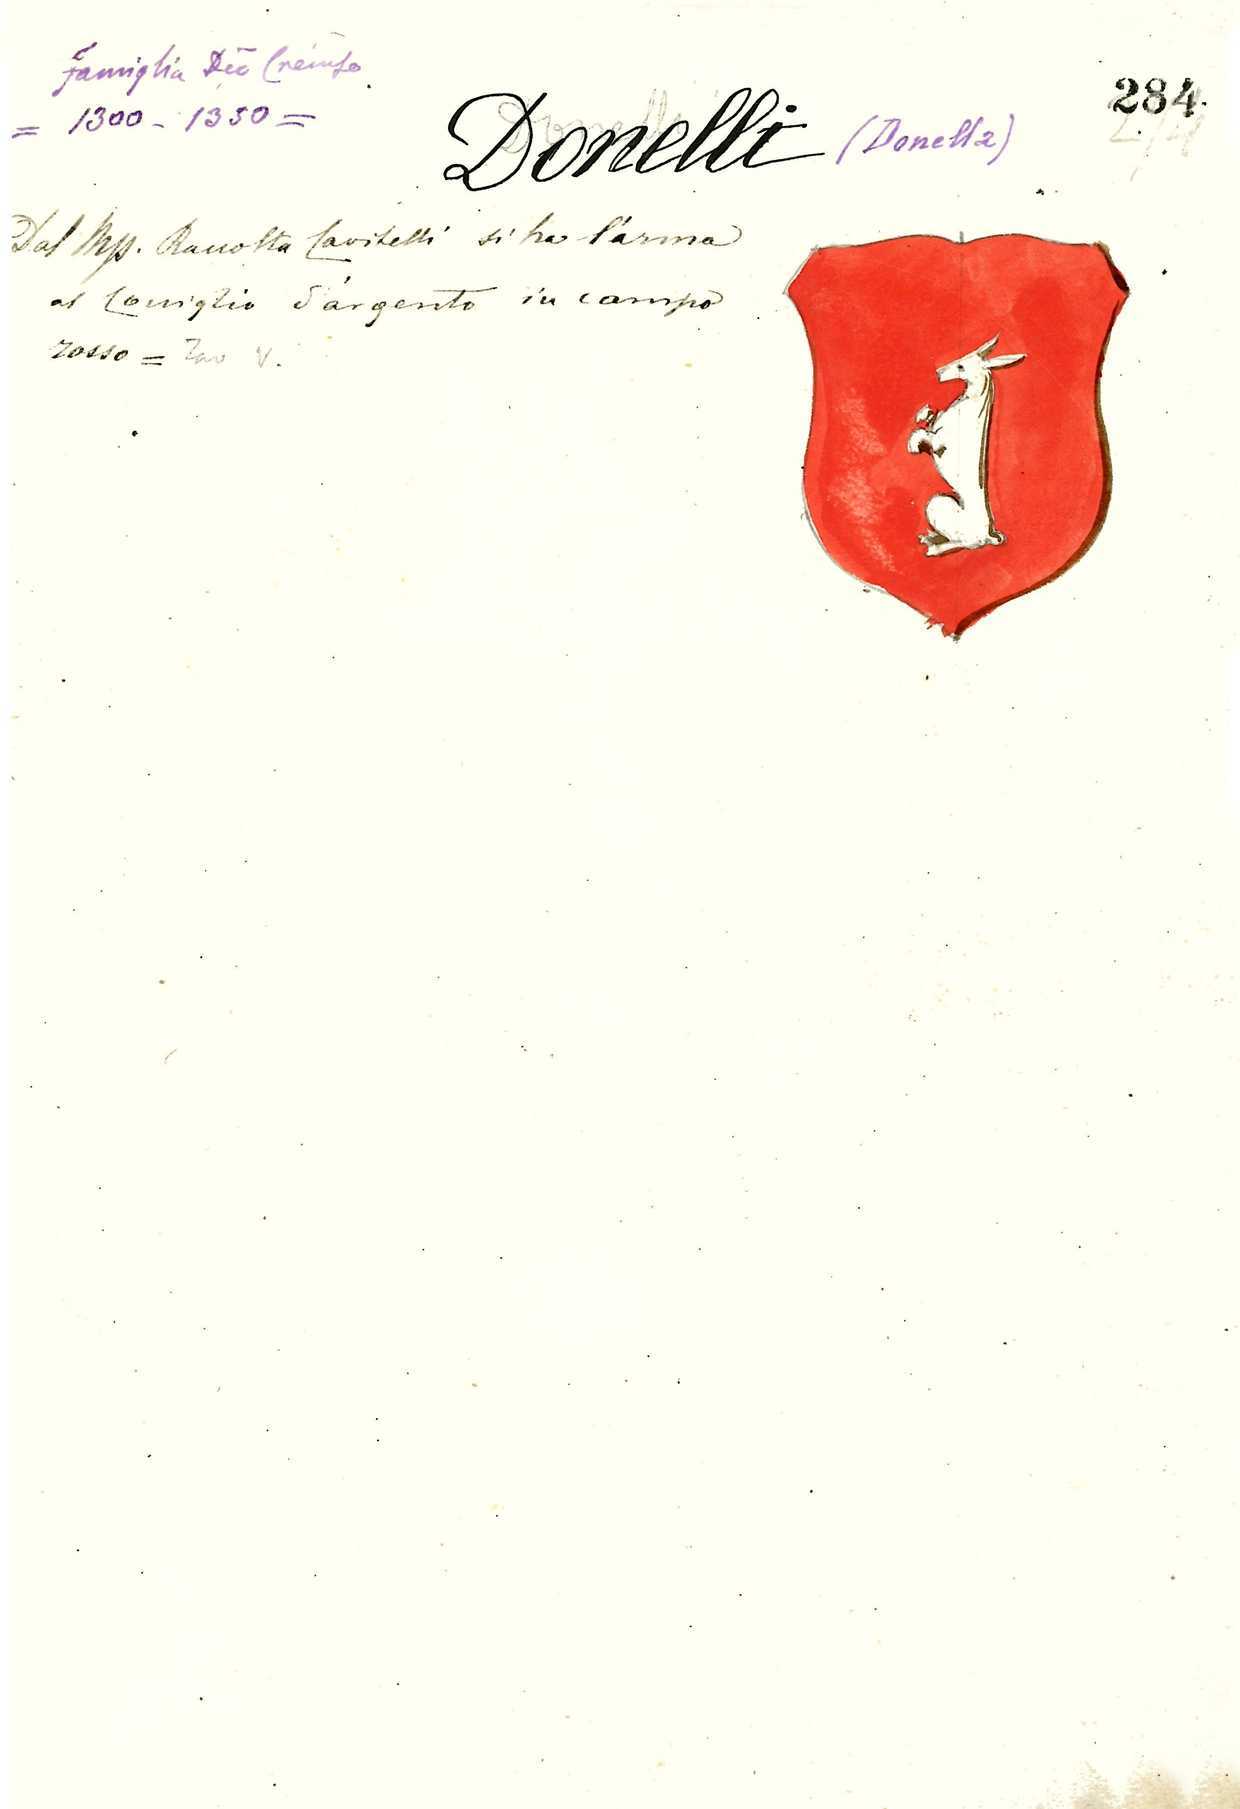 Famiglia
= 1300 - 1350 =
Donelli (Donella)
284.
Dal Mss. Raccolta Cavitelli si ha l'arma
al Coniglio d'argento in campo
rosso = Tav V.